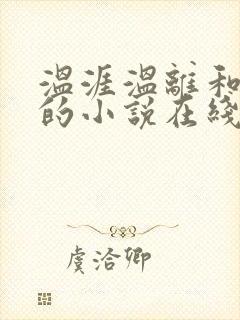 温涯温離和
的小说在綫
虞洽卿